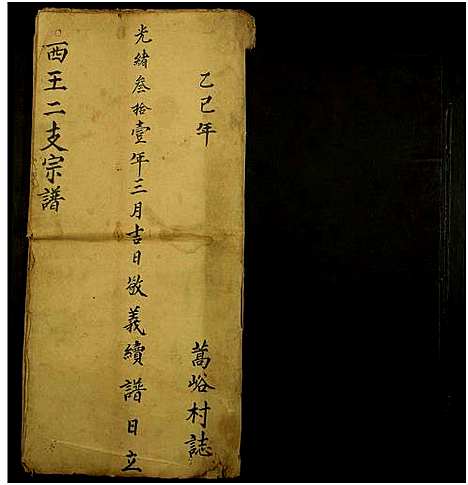 乙巳年
蒿峪村誌
光緒叁拾壹年三月吉日敬義續譜日立
西王二支宗譜